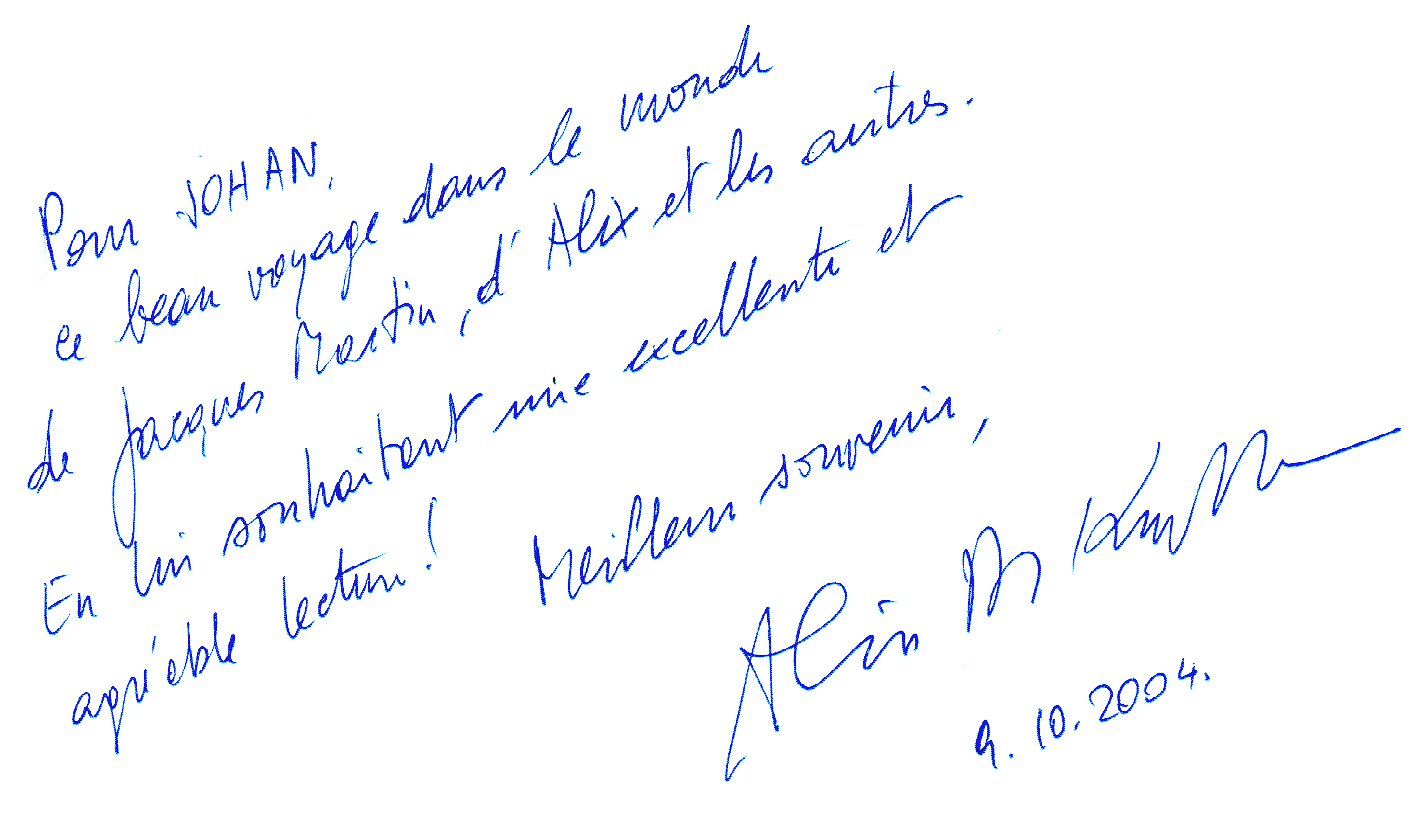 Pour JOHAN,
ce beau voyage dans le monde
de Jacques Martin, d'Alix et les autres.
En lui souhaitant une excellente et
agréable lecture! Meilleur souvenir,
Alin
9.10.2004.